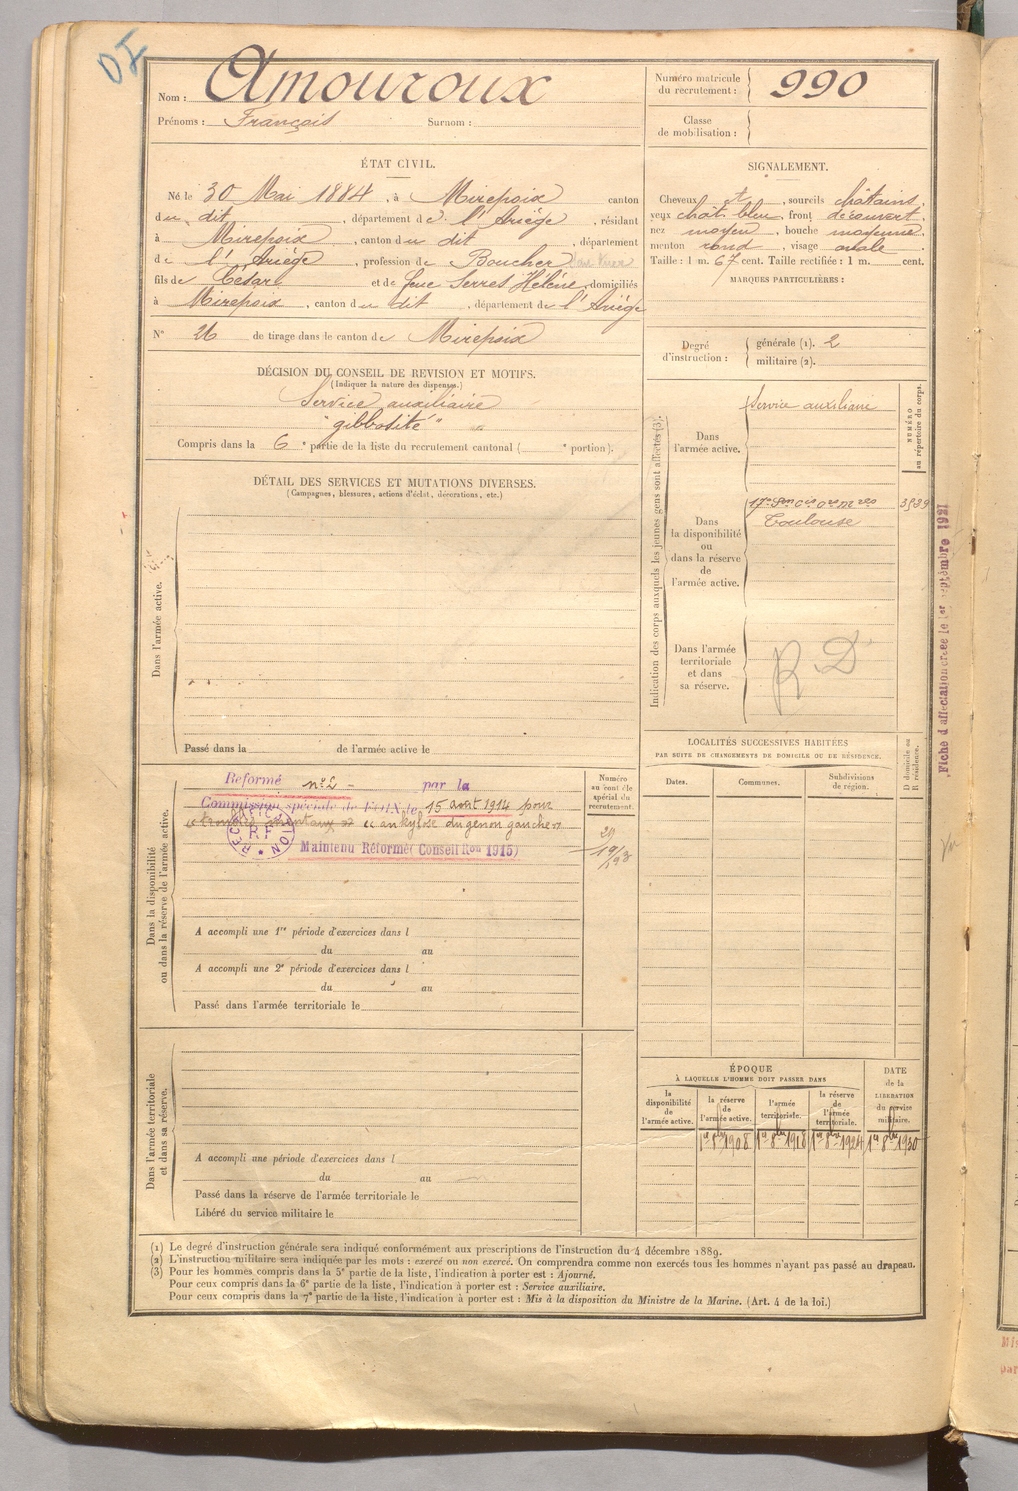 DI
Nom : Amouroux
Prénoms : François Surnom :
Numéro matricule du recrutement : 990
Classe de mobilisation :
ÉTAT CIVIL.
Né le 30 Mai 1884, à Mirepoix canton
du dit, département de l'Ariège, résidant
à Mirepoix, canton du dit, département
de l'Ariège, profession de Boucher
fils de Césaré et de feue Serres Hélène, domiciliés
à Mirepoix, canton du dit, département de l'Ariège
N° 26 de tirage dans le canton de Mirepoix
SIGNALEMENT.
Cheveux et, sourcils châtains,
yeux chât. bleu, front découvert,
nez moyen, bouche moyenne,
menton rond, visage ovale
Taille : 1 m. 67 cent. Taille rectifiée : 1 m. cent.
MARQUES PARTICULIÈRES :
Degré d'instruction : générale (1). 2
militaire (2).
DÉCISION DU CONSEIL DE REVISION ET MOTIFS.
(Indiquer la nature des dispenses.)
Service auxiliaire
"gibbosité"
Compris dans la 6e partie de la liste du recrutement cantonal ( e portion).
DÉTAIL DES SERVICES ET MUTATIONS DIVERSES.
(Campagnes, blessures, actions d'éclat, décorations, etc.)
Dans l'armée active.
Passé dans la de l'armée active le
Indication des corps auxquels les jeunes gens sont affectés (3).
NUMÉRO au répertoire du corps.
Dans l'armée active.
Service auxiliaire
Dans la disponibilité ou dans la réserve de l'armée active.
Toulouse
Dans l'armée territoriale et dans sa réserve.
R D
Fiche d'affectation créée le 1er septembre 1921
LOCALITÉS SUCCESSIVES HABITÉES
PAR SUITE DE CHANGEMENTS DE DOMICILE OU DE RÉSIDENCE.
Dates. Communes. Subdivisions de région. D domicile ou R résidence.
Dans la disponibilité ou dans la réserve de l'armée active.
Numéro au contrôle spécial du recrutement.
Réformé n° 2 - par la
Commission spéciale de FOIX le 15 août 1914 pour
"ankylose du genou gauche"
RF
Maintenu Réformé (Conseil Ron 1915)
A accompli une 1re période d'exercices dans l
du au
A accompli une 2e période d'exercices dans l
du au
Passé dans l'armée territoriale le
Dans l'armée territoriale et dans sa réserve.
A accompli une période d'exercices dans l
du au
Passé dans la réserve de l'armée territoriale le
Libéré du service militaire le
ÉPOQUE
À LAQUELLE L'HOMME DOIT PASSER DANS
la disponibilité de l'armée active.
la réserve de l'armée active.
l'armée territoriale.
la réserve de l'armée territoriale.
DATE de la LIBÉRATION du service militaire.
1er 8bre 1908 1er 8bre 1918 1er 8bre 1924 1er 8bre 1930
(1) Le degré d'instruction générale sera indiqué conformément aux prescriptions de l'instruction du 4 décembre 1889.
(2) L'instruction militaire sera indiquée par les mots : exercé ou non exercé. On comprendra comme non exercés tous les hommes n'ayant pas passé au drapeau.
(3) Pour les hommes compris dans la 5e partie de la liste, l'indication à porter est : Ajourné.
Pour ceux compris dans la 6e partie de la liste, l'indication à porter est : Service auxiliaire.
Pour ceux compris dans la 7e partie de la liste, l'indication à porter est : Mis à la disposition du Ministre de la Marine. (Art. 4 de la loi.)